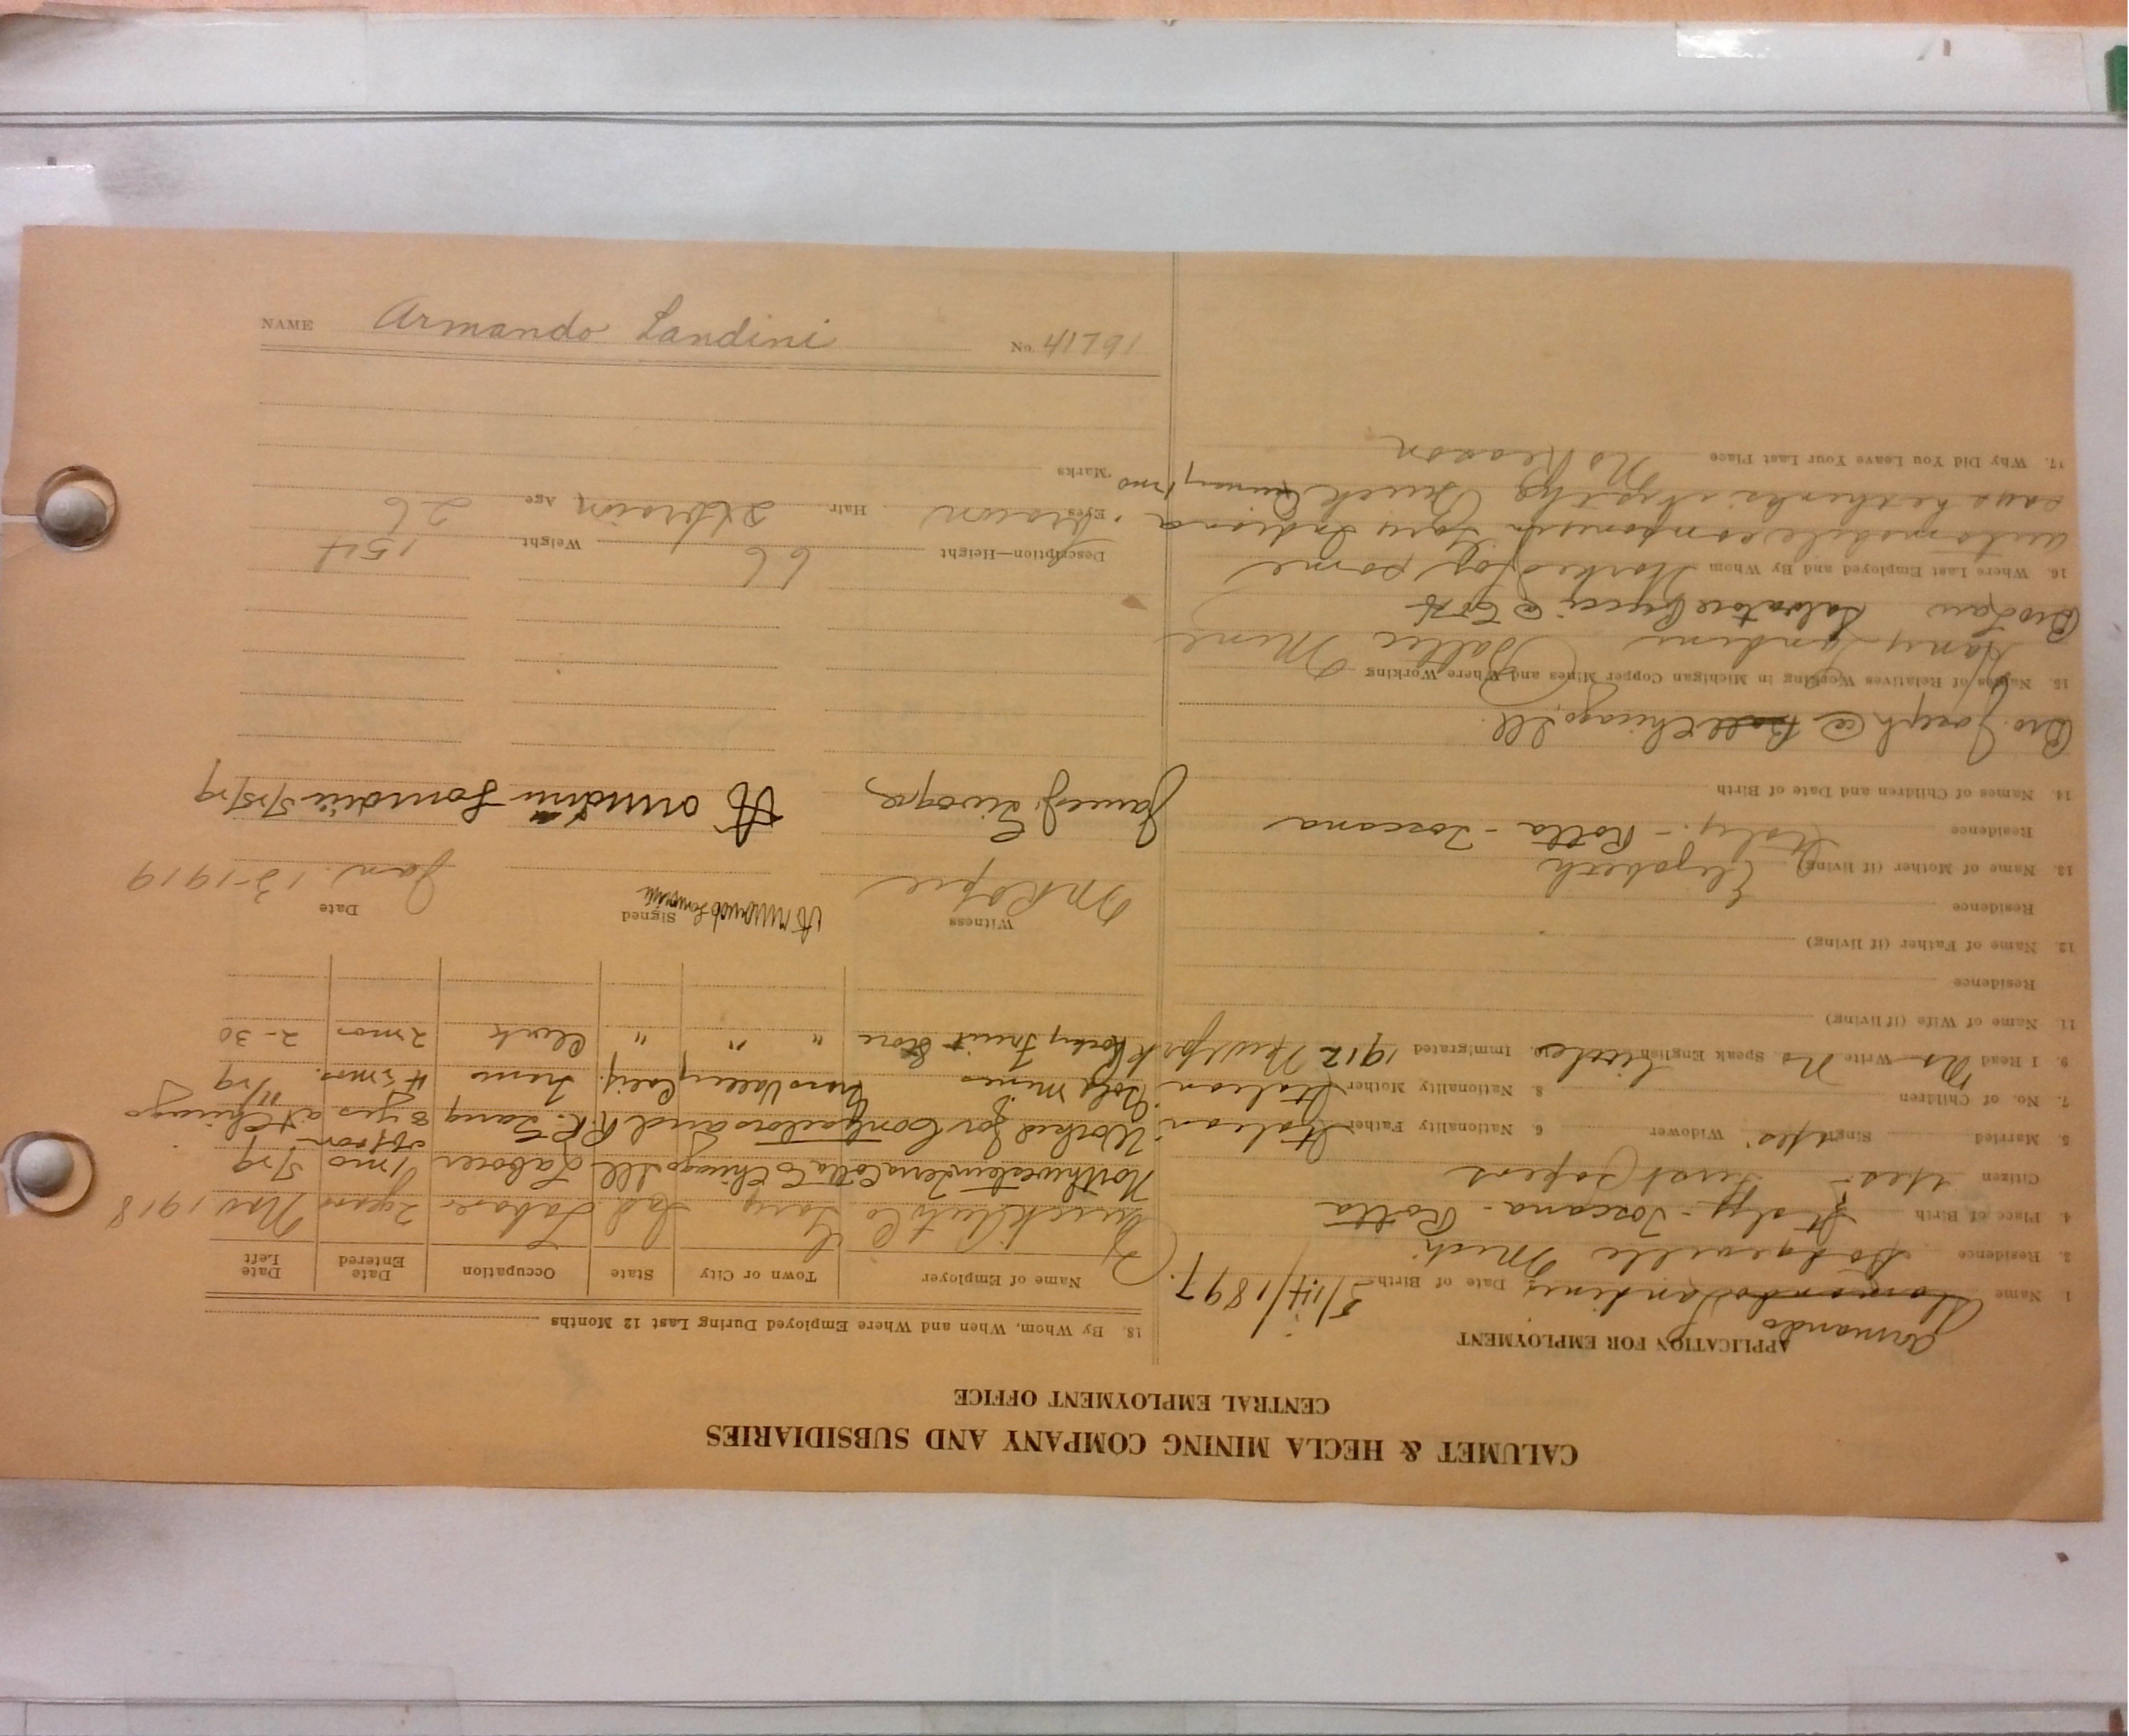 CALUMET & HECLA MINING COMPANY AND SUBSIDIARIES
CENTRAL EMPLOYMENT OFFICE
APPLICATION FOR EMPLOYMENT
Armando
1. Name Landini Date of Birth 5/14/1897.
2. Residence Dodgeville Mich
4. Place of Birth Italy - Toscana - Rotta
Citizen Yes - First Papers
5. Married Single Yes Widower 6. Nationality Father Italian
7. No. of Children 8. Nationality Mother Italian
9. I Read No Write No Speak English Little 10. Immigrated 1912 New York
11. Name of Wife (if living)
Residence
12. Name of Father (if living)
Residence
13. Name of Mother (if living) Elizabeth
Residence Italy - Rotta - Toscana
14. Names of Children and Date of Birth
Bro. Joseph @ Chicago Ill
15. Names of Relatives Working in Michigan Copper Mines and Where Working
Harry Landini Baltic Mine
Bro Law Salvatore @
16. Where Last Employed and By Whom Worked for some
automobile company in Gary Indiana
says he thinks
17. Why Did You Leave Your Last Place No Reason
18. By Whom, When and Where Employed During Last 12 Months
Name of Employer Town or City State Occupation Date Entered Date Left
Buick Auto Co Gary Ind Laborer 2 years Nov 1918
Northwestern Terra Cotta Co Chicago Ill Laborer 1 mo 5/19
Worked for Contractors and R.R. Gang 8 yrs at Chicago
Gold mines Valley Calif. 4 5 mos. 11/19
Fruit Store " " " Clerk 2 mos 2-30
Witness Signed Date
Jan. 13-1919
James 5/15/19
Description—Height 66 Weight 154
Eyes Brown Hair Age 26
Marks
NAME Armando Landini No. 41791